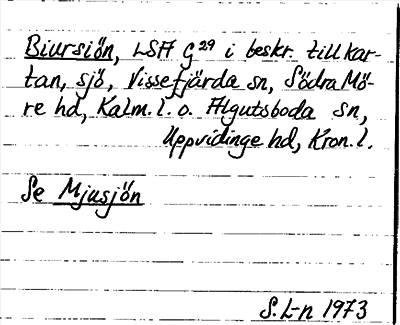 Biursiön, LSA G29 i beskr. till kar-
tan, sjö, Vissefjärda sn, Södra Mö-
re hd, Kalm. l. o. Algutsboda sn,
Uppvidinge hd, Kron. l.
Se Mjusjön
S. L-n 1973